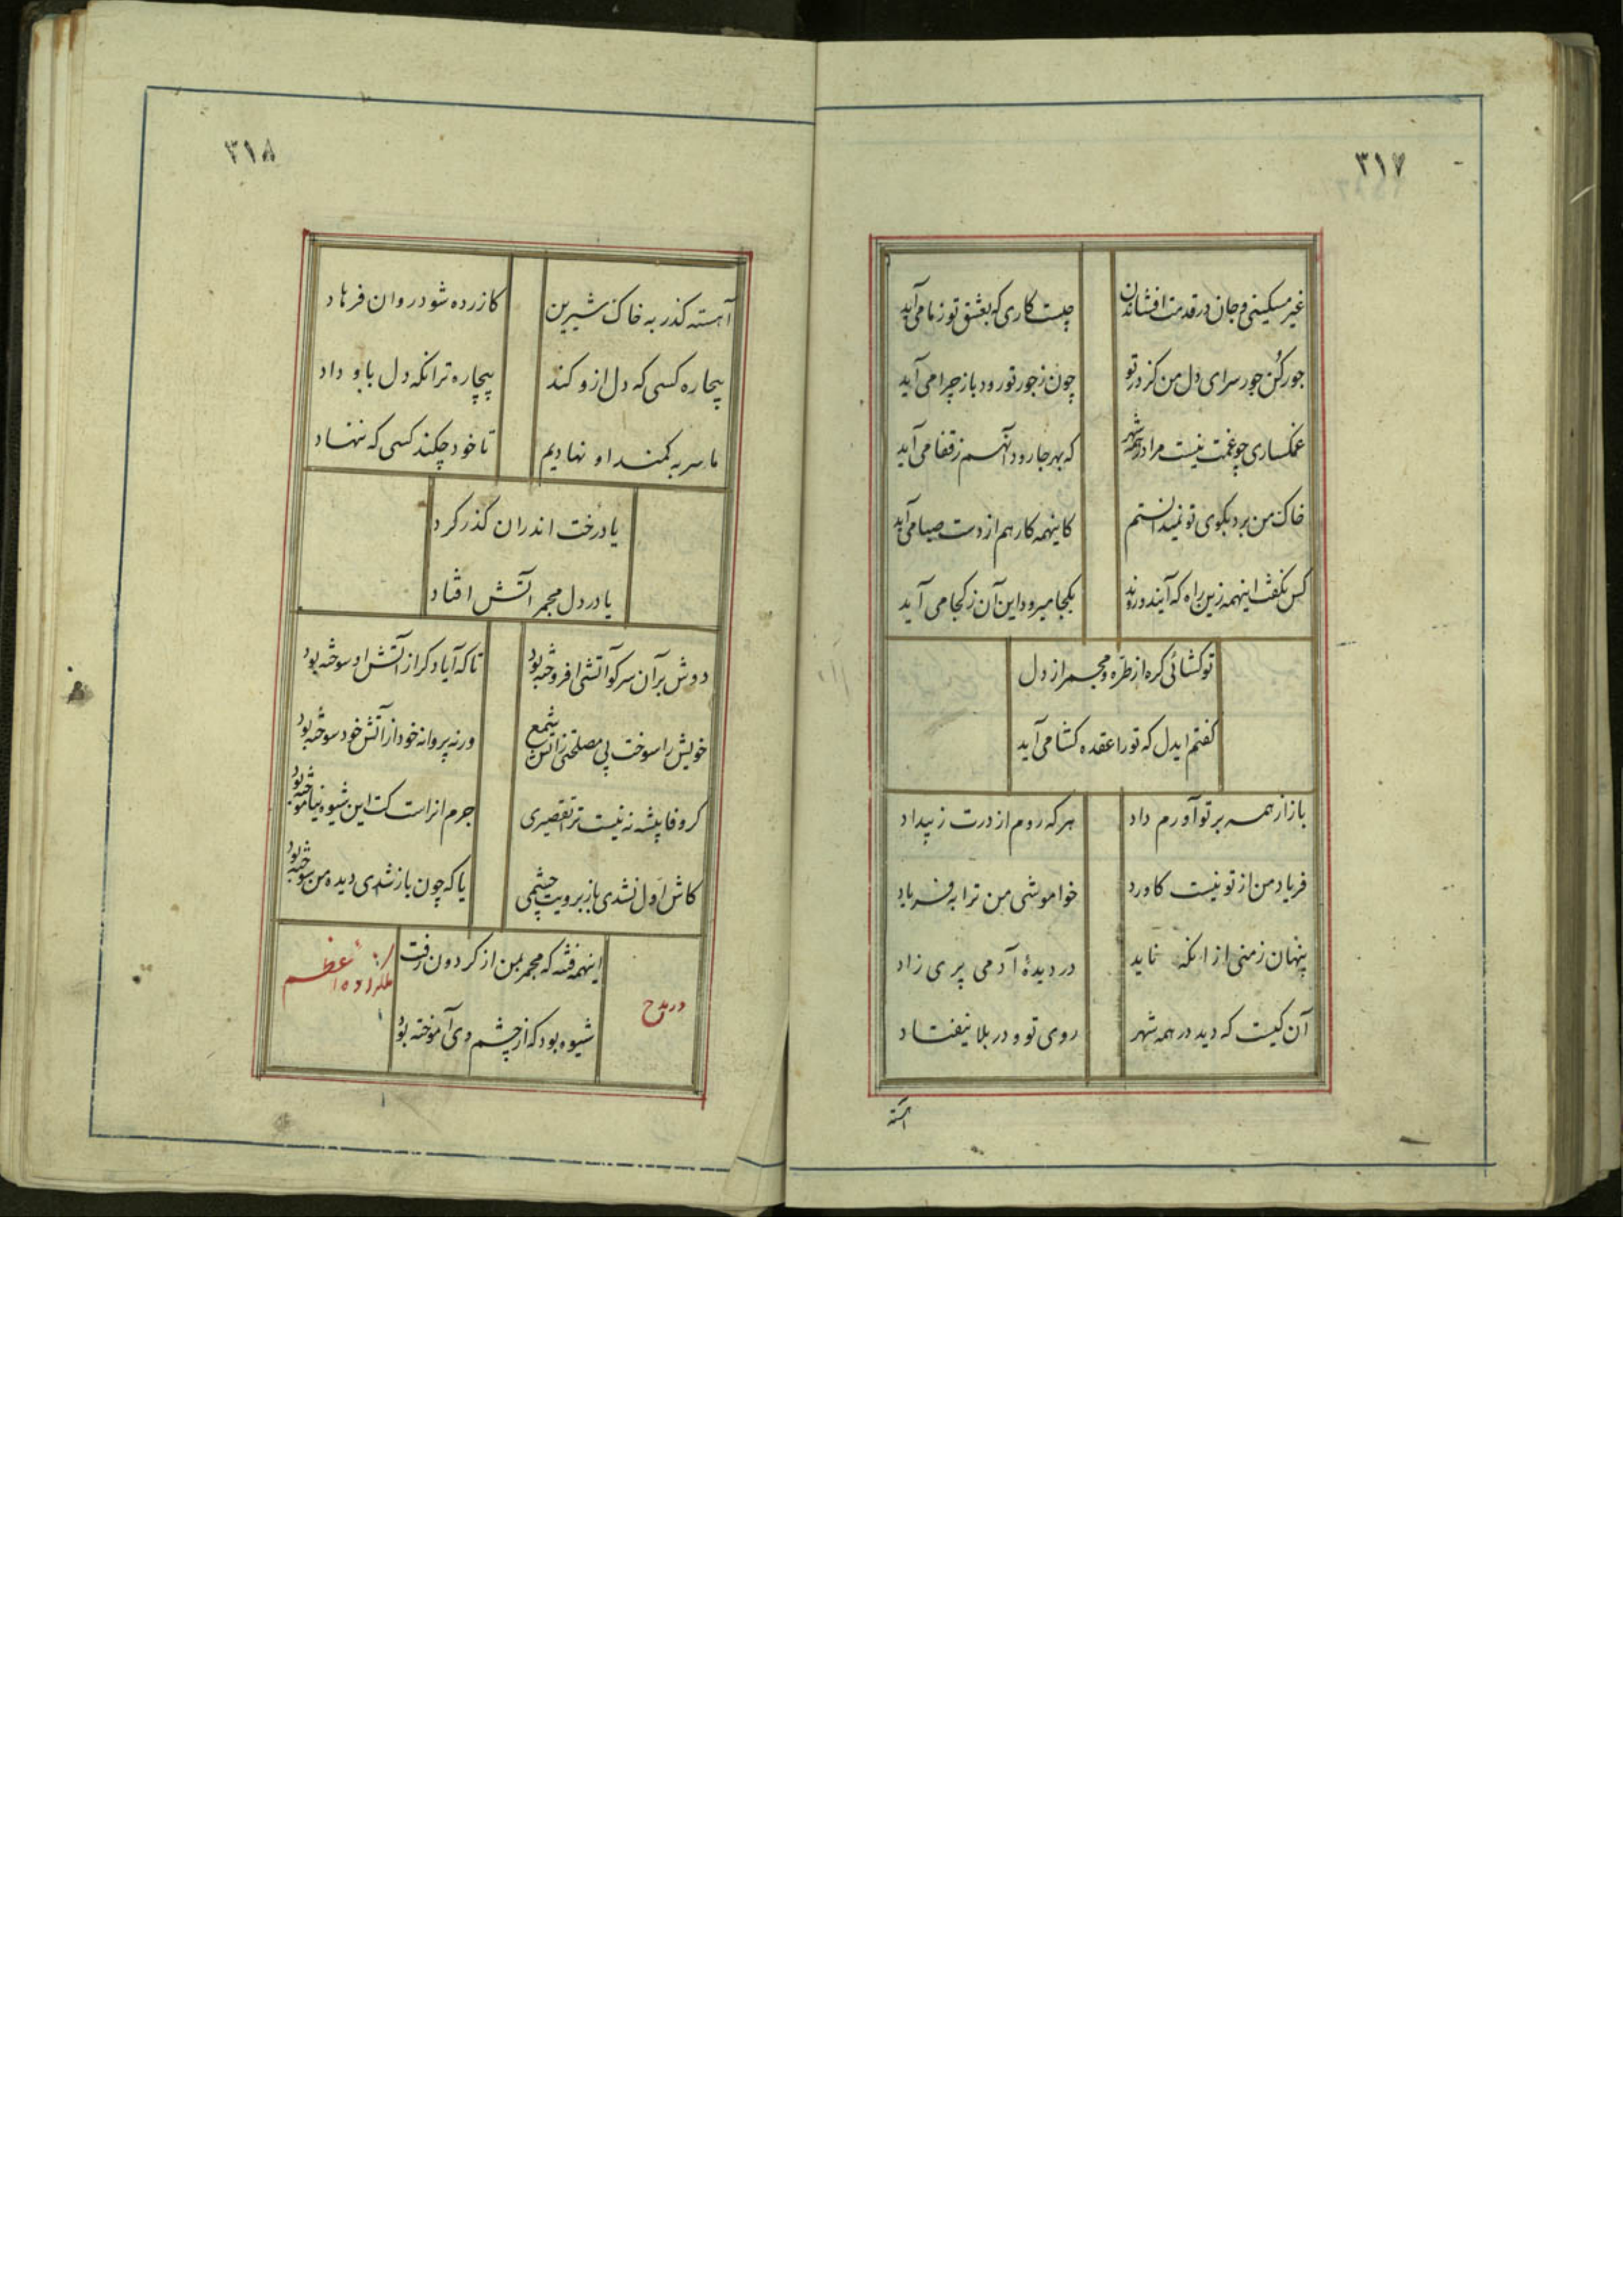 ۳۱۷
غیر مسکینی و جان در قدمت افشاندن چیست کاری که بعشق تو ز ما می‌آید
جور کن جور سرای دل من کز در تو چون ز جور تو رود باز چرا می‌آید
غمگساری چو غمت نیست مرا در همه شهر که بهر جا رود آنهم ز قفا می‌آید
خاک من برد بکوی تو نمیدانستم کاینهمه کار هم از دست صبا می‌آید
کس نگفت اینهمه زین راه که آیند و روند بکجا میرود این آن ز کجا می‌آید
تو گشائی گره از طره و مجمر از دل
گفتم ایدل که تو را عقده گشا می‌آید
باز از همه بر تو آورم داد هر گه روم از درت ز بیداد
فریاد من از تو نیست کاورد خواموشی من ترا به فریاد
پنهان ز منی از انکه ناید در دیدهٔ آدمی پری زاد
آن کیست که دید در همه شهر روی تو و در بلا نیفتاد
آهسته
۳۱۸
آهسته گذر به خاک شیرین کازرده شود روان فرهاد
بیچاره کسی که دل ازو کند بیچاره‌تر انکه دل باو داد
ما سر به کمند او نهادیم تا خود چکند کسی که ننهاد
یا درخت اندران گذر کرد
یا در دل مجمر آتش افتاد
دوش بر آن سر کو آتشی افروخته بود تا که آیا دگر از آتش او سوخته بود
خویش را سوخت پی مصلحتی ز آتش شمع ورنه پروانه خود از آتش خود سوخته بود
گر وفا پیشه نه نیست ترا تقصیری جرم ازانست کت این شیوه نیاموخته بود
کاش اول نشدی باز برویت چشمی یا که چون باز شدی دیده من دوخته بود
اینهمه فتنه که مجمر بمن از گردون رفت
شیوه بود که از چشم وی آموخته بود
در مدح اعظم